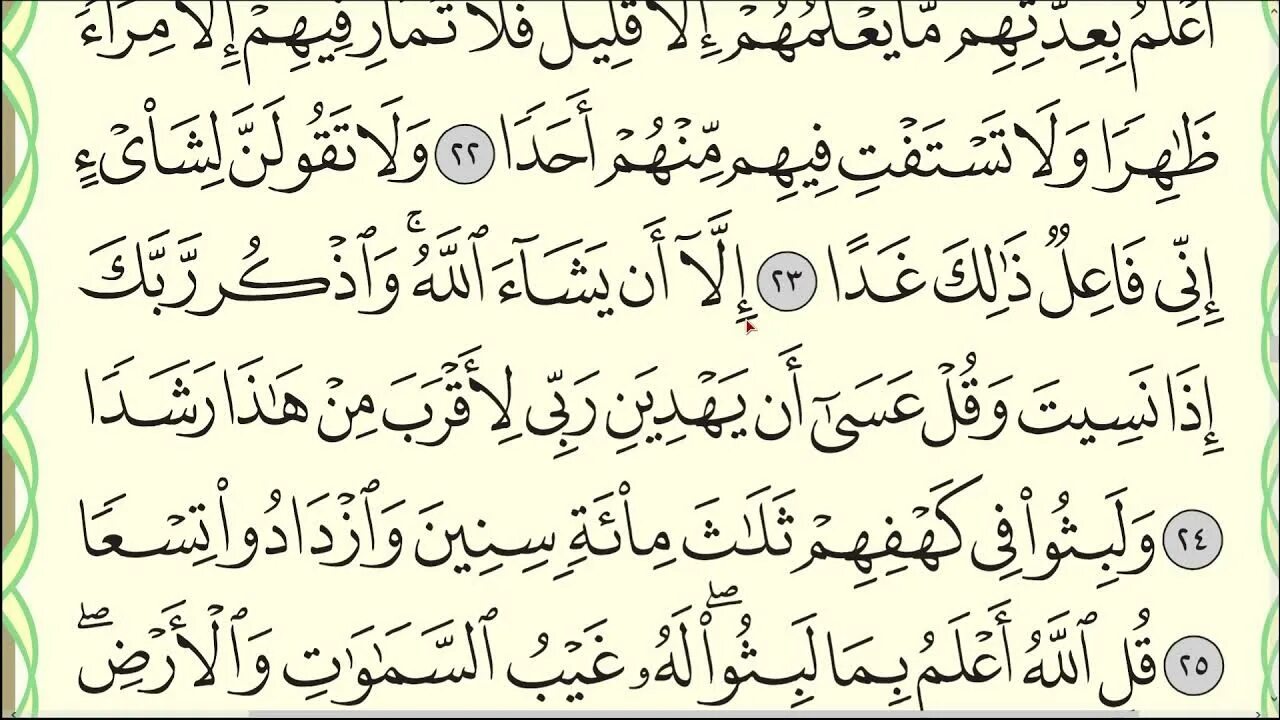 أَعْلَمُ بِعِدَّتِهِم مَّا يَعْلَمُهُمْ إِلَّا قَلِيلٌ فَلَا تُمَارِ فِيهِمْ إِلَّا مِرَآءً
ظَٰهِرًا وَلَا تَسْتَفْتِ فِيهِم مِّنْهُمْ أَحَدًا ٢٢ وَلَا تَقُولَنَّ لِشَا۟ىْءٍ
إِنِّى فَاعِلٌ ذَٰلِكَ غَدًا ٢٣ إِلَّآ أَن يَشَآءَ ٱللَّهُ ۚ وَٱذْكُر رَّبَّكَ
إِذَا نَسِيتَ وَقُلْ عَسَىٰٓ أَن يَهْدِيَنِ رَبِّى لِأَقْرَبَ مِنْ هَٰذَا رَشَدًا
٢٤ وَلَبِثُوا۟ فِى كَهْفِهِمْ ثَلَٰثَ مِا۟ئَةٍ سِنِينَ وَٱزْدَادُوا۟ تِسْعًا
٢٥ قُلِ ٱللَّهُ أَعْلَمُ بِمَا لَبِثُوا۟ ۖ لَهُۥ غَيْبُ ٱلسَّمَٰوَٰتِ وَٱلْأَرْضِ ۖ